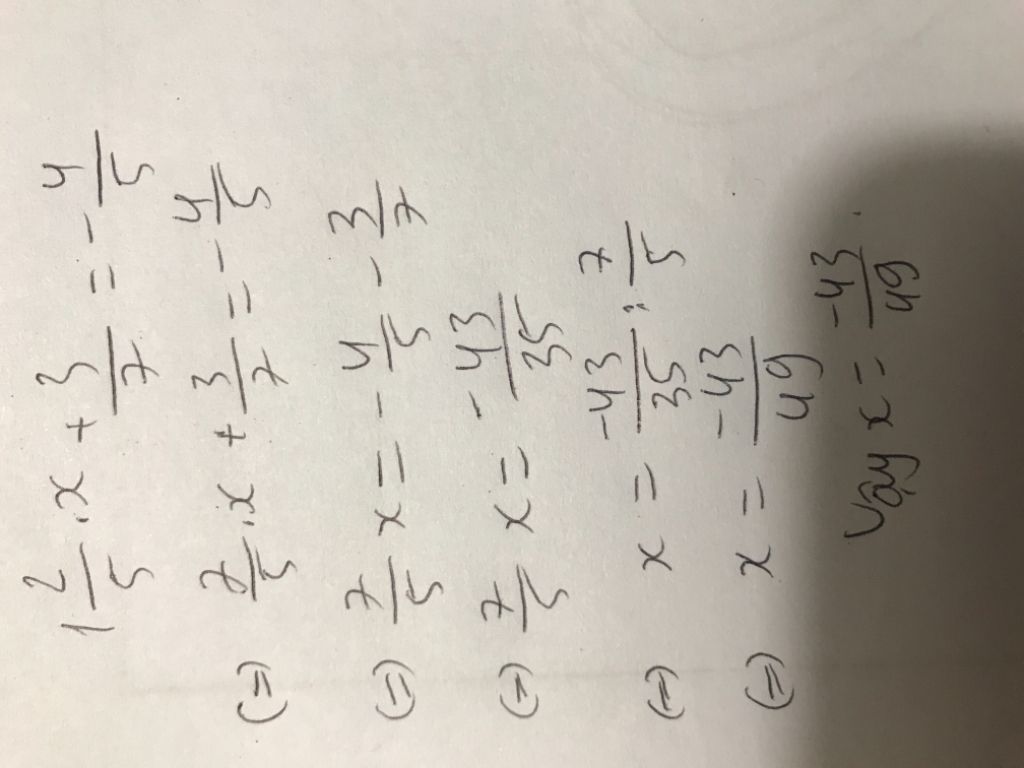 1 2/5 . x + 3/7 = - 4/5
(=) 7/5 . x + 3/7 = - 4/5
(=) 7/5 x = - 4/5 - 3/7
(=) 7/5 x = - 43/35
(=) x = -43/35 : 7/5
(=) x = -43/49
Vậy x = -43/49 .